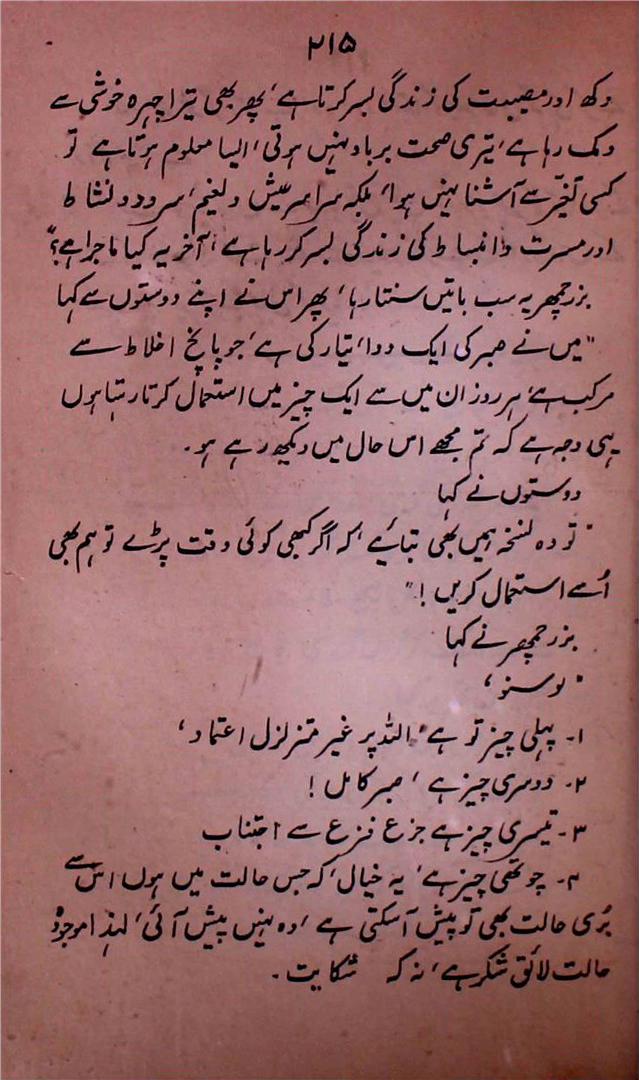 ۲۱۵
دکھ اور مصیبت کی زندگی بسر کرتا ہے، پھر بھی تیرا چہرہ خوشی سے
دمک رہا ہے، تیری صحت برباد نہیں ہوتی، ایسا معلوم ہوتا ہے تو
کسی تغیّر سے آشنا نہیں ہوا، بلکہ سراسر عیش و نعیم، سرود و نشاط
اور مسرت و انبساط کی زندگی بسر کر رہا ہے، آخر یہ کیا ماجرا ہے؟"
بزرجمھر یہ سب باتیں سنتا رہا، پھر اس نے اپنے دوستوں سے کہا
"میں نے صبر کی ایک دوا، تیار کی ہے، جو پانچ اخلاط سے
مرکب ہے، ہر روز ان میں سے ایک چیز میں استعمال کرتا رہتا ہوں
یہی وجہ ہے کہ تم مجھے اس حال میں دیکھ رہے ہو۔
دوستوں نے کہا
"تو وہ نسخہ ہمیں بھی بتائیے، کہ اگر کبھی کوئی وقت پڑے تو ہم بھی
اُسے استعمال کریں!"
بزرجمھر نے کہا
"لو سنو،
۱۔ پہلی چیز تو ہے، اللہ پر غیر متزلزل اعتماد،
۲۔ دوسری چیز ہے، صبر کامل!
۳۔ تیسری چیز ہے جزع فزع سے اجتناب
۴۔ چوتھی چیز ہے، یہ خیال، کہ جس حالت میں ہوں اس سے
بُری حالت بھی تو پیش آسکتی ہے، وہ نہیں پیش آئی، لہٰذا موجودہ
حالت لائق شکر ہے، نہ کہ شکایت۔